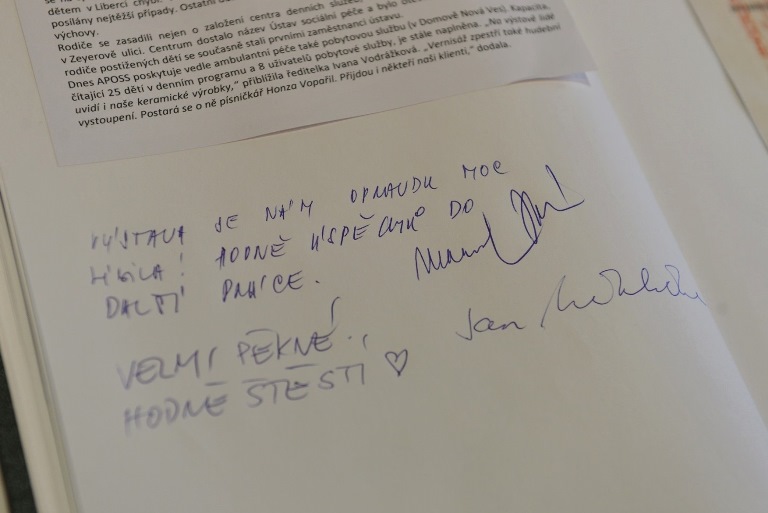 dětem v Liberci chybí.
posílány nejtěžší případy. Ostatní
výchovy.
Rodiče se zasadili nejen o založení centra denních služeb
v Zeyerově ulici. Centrum dostalo název Ústav sociální péče a bylo
rodiče postižených dětí se současně stali prvními zaměstnanci ústavu.
Dnes APOSS poskytuje vedle ambulantní péče také pobytovou službu (v Domově Nová Ves). Kapacita,
čítající 25 dětí v denním programu a 8 uživatelů pobytové služby, je stále naplněna. „Na výstavě lidé
uvidí i naše keramické výrobky,“ přiblížila ředitelka Ivana Vodrážková. „Vernisáž zpestří také hudební
vystoupení. Postará se o ně písničkář Honza Vopařil. Přijdou i někteří naši klienti,“ dodala.
VÝSTAVA SE NÁM OPRAVDU MOC
LÍBILA! HODNĚ ÚSPĚCHŮ DO
DALŠÍ PRÁCE.
Jan
VELMI PĚKNÉ!
HODNĚ ŠTĚSTÍ ♡